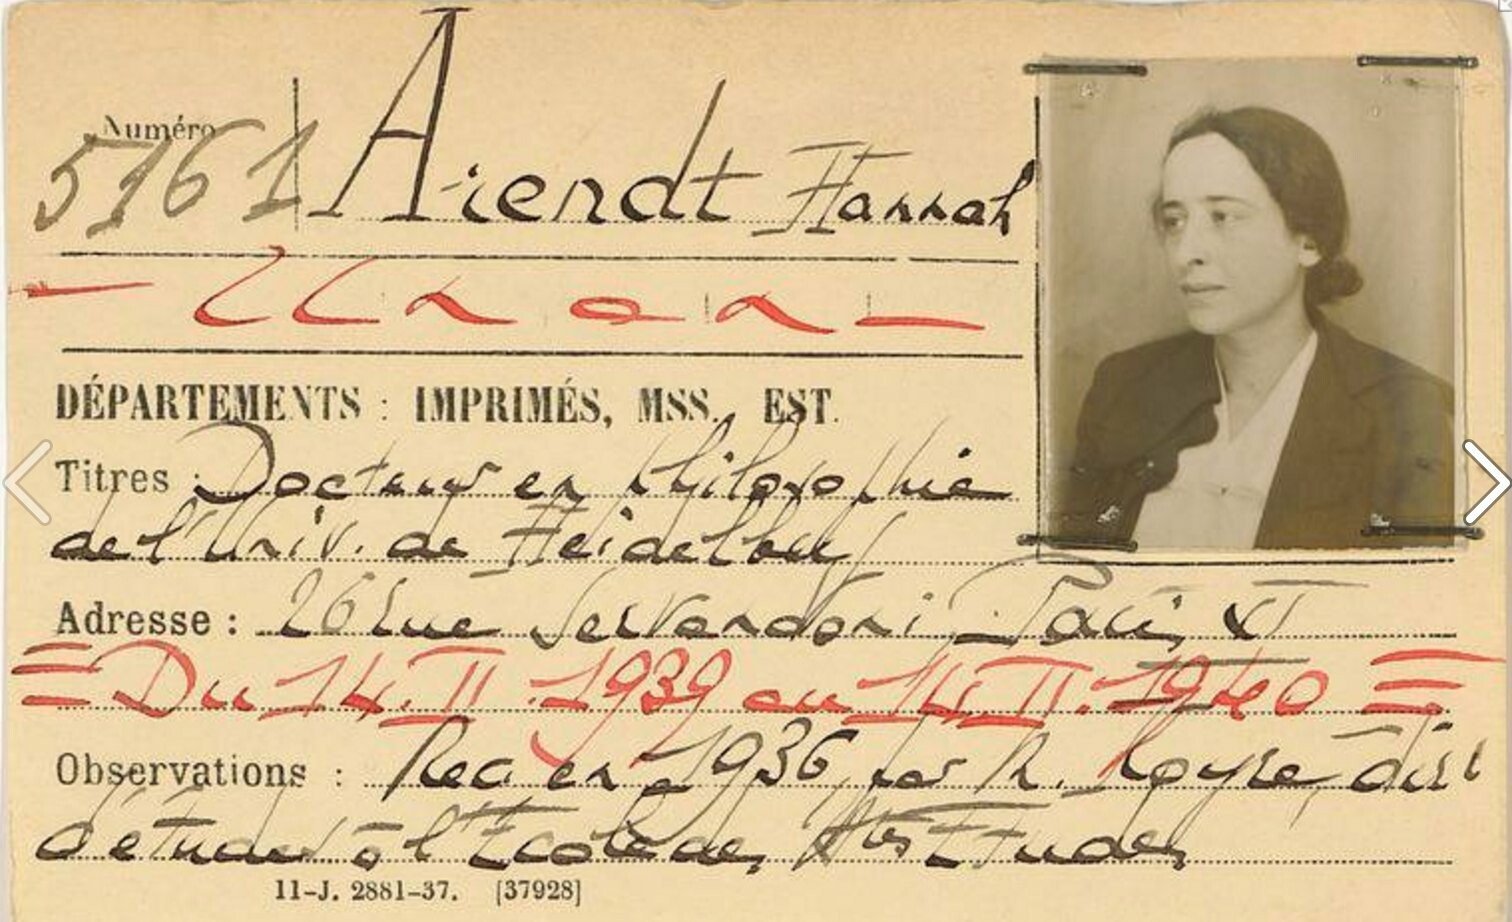 Numéro
5161 Arendt Hannah
DÉPARTEMENTS : IMPRIMÉS, MSS., EST.
Titres : Docteur en philosophie
de l'Univ. de Heidelberg
Adresse : 26 rue Servandoni Paris VI
= Du 14.II.1939 au 14.II.1940 =
Observations : Rec. en 1936 par M. Koyré, dir
d'études à l'Ecole des Htes Etudes
11-J. 2881-37. [37928]